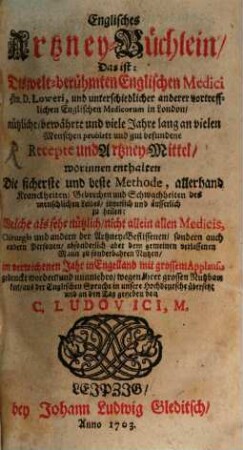 Englisches
Artzney-Büchlein/
Das ist:
Des welt-berühmten Englischen Medici
Hn. D. Loweri, und unterschiedlicher anderer vortreff-
lichen Englischen Medicorum in London/
nützliche/ bewährte und viele Jahre lang an vielen
Menschen probirte und gut befundene
Recepte und Artzney-Mittel/
worinnen enthalten
Die sicherste und beste Methode, allerhand
Kranckheiten/ Gebrechen und Schwachheiten des
menschlichen Leibes/ innerlich und äusserlich
zu heilen:
Welche als sehr nützlich/ nicht allein allen Medicis,
Chirurgis und andern der Artzney-Beflissenen/ sondern auch
andern Personen/ absonderlich aber dem gemeinen
Mann zu sonderbahren Nutzen/
im verwichenen Jahr in Engelland mit grossem Applausu
gedruckt worden/ und nunmehro/ wegen ihrer grossen Nutzbar-
keit/ aus der Englischen Sprache in unsere Hochdeutsche übersetzt
und an den Tag gegeben von
C. LUDOVICI, M.
LEIPZIG/
bey Johann Ludwig Gleditsch/
Anno 1703.